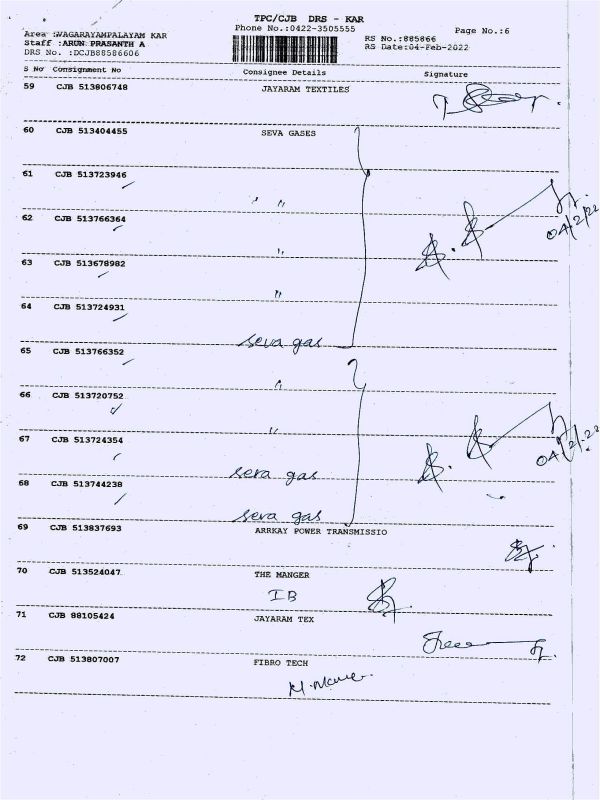 TPC/CJB DRS - KAR
Phone No.:0422-3505555 Page No.:6
Area :VAGARAYAMPALAYAM KAR RS No.:885866
Staff :ARUN PRASANTH A RS Date:04-Feb-2022
DRS No. :DCJB88586606
S No Consignment No Consignee Details Signature
59 CJB 513806748 JAYARAM TEXTILES
60 CJB 513404455 SEVA GASES
61 CJB 513723946
〃
62 CJB 513766364 04/2/22
〃
63 CJB 513678982
〃
64 CJB 513724931
seva gas
65 CJB 513766352
〃
66 CJB 513720752
〃
67 CJB 513724354 04/2/.22
seva gas
68 CJB 513744238
seva gas
69 CJB 513837693 ARRKAY POWER TRANSMISSIO
70 CJB 513524047 THE MANGER
IB
71 CJB 88105424 JAYARAM TEX
72 CJB 513807007 FIBRO TECH